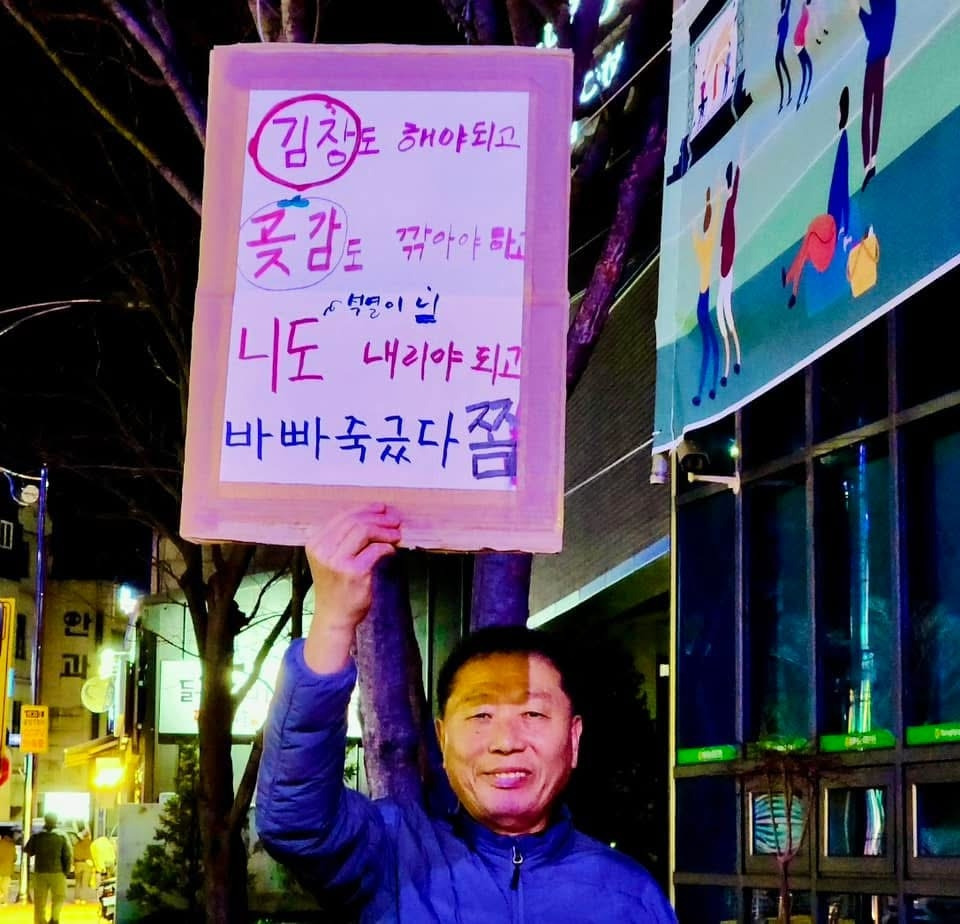 김창도 해야되고
곶감도 깎아야 하고
석열이 님
니도 내리야 되고
바빠죽긌다 쫌
안과
city